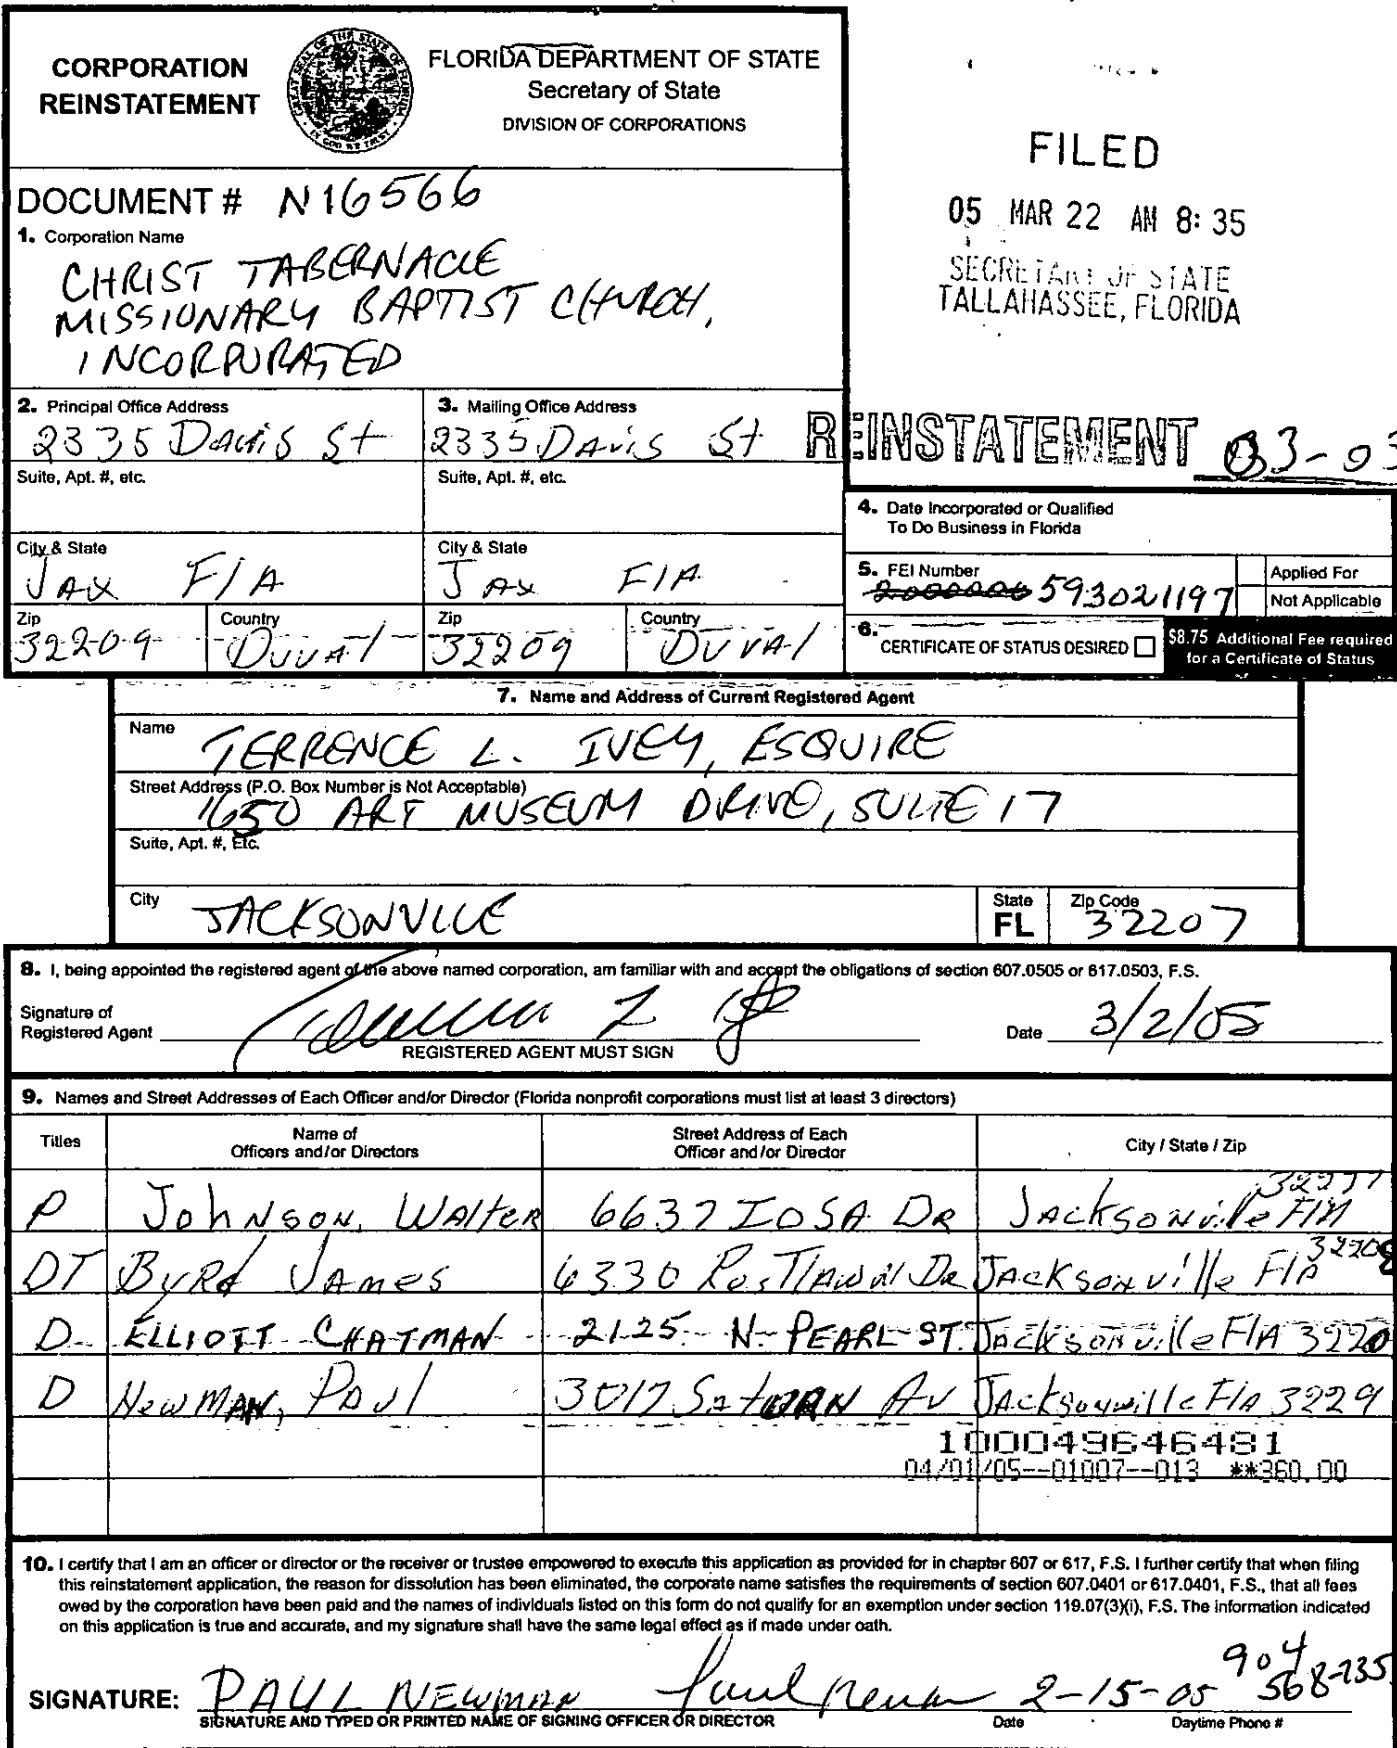 CORPORATION
REINSTATEMENT
GREAT SEAL OF THE STATE OF FLORIDA
IN GOD WE TRUST
FLORIDA DEPARTMENT OF STATE
Secretary of State
DIVISION OF CORPORATIONS
FILED
05 MAR 22 AM 8: 35
SECRETARY OF STATE
TALLAHASSEE, FLORIDA
DOCUMENT # N16566
1. Corporation Name
CHRIST TABERNACLE
MISSIONARY BAPTIST CHURCH,
INCORPORATED
REINSTATEMENT 03-03
2. Principal Office Address
2335 Davis St
3. Mailing Office Address
2335 Davis St
Suite, Apt. #, etc.
Suite, Apt. #, etc.
City & State
JAX FlA
City & State
JAX FlA
Zip
32209
Country
Duval
Zip
32209
Country
DUVAl
4. Date Incorporated or Qualified
To Do Business in Florida
5. FEI Number
593021197
Applied For
Not Applicable
6. CERTIFICATE OF STATUS DESIRED
$8.75 Additional Fee required
for a Certificate of Status
7. Name and Address of Current Registered Agent
Name
TERRENCE L. IVEY, ESQUIRE
Street Address (P.O. Box Number is Not Acceptable)
1650 ART MUSEUM DRIVE, SUITE 17
Suite, Apt. #, Etc.
City
JACKSONVILLE
State
FL
Zip Code
32207
8. I, being appointed the registered agent of the above named corporation, am familiar with and accept the obligations of section 607.0505 or 617.0503, F.S.
Signature of
Registered Agent
REGISTERED AGENT MUST SIGN
Date 3/2/05
9. Names and Street Addresses of Each Officer and/or Director (Florida nonprofit corporations must list at least 3 directors)
Titles
Name of
Officers and/or Directors
Street Address of Each
Officer and/or Director
City / State / Zip
P Johnson, Walter 6637 IOSA DR Jacksonville FlA
DT Byrd James 6330 Dr Jacksonville FlA 32208
D ELLIOTT CHATMAN 2125 N. PEARL ST. Jacksonville FlA 3220
D NewMAN, Paul 3017 Av Jacksonville FlA 3229
100049646481
04/01/05--01007--013 **360.00
10. I certify that I am an officer or director or the receiver or trustee empowered to execute this application as provided for in chapter 607 or 617, F.S. I further certify that when filing
this reinstatement application, the reason for dissolution has been eliminated, the corporate name satisfies the requirements of section 607.0401 or 617.0401, F.S., that all fees
owed by the corporation have been paid and the names of individuals listed on this form do not qualify for an exemption under section 119.07(3)(i), F.S. The information indicated
on this application is true and accurate, and my signature shall have the same legal effect as if made under oath.
SIGNATURE: PAUL NEWMAN Paul Newman 2-15-05 904
568-735
SIGNATURE AND TYPED OR PRINTED NAME OF SIGNING OFFICER OR DIRECTOR
Date
Daytime Phone #